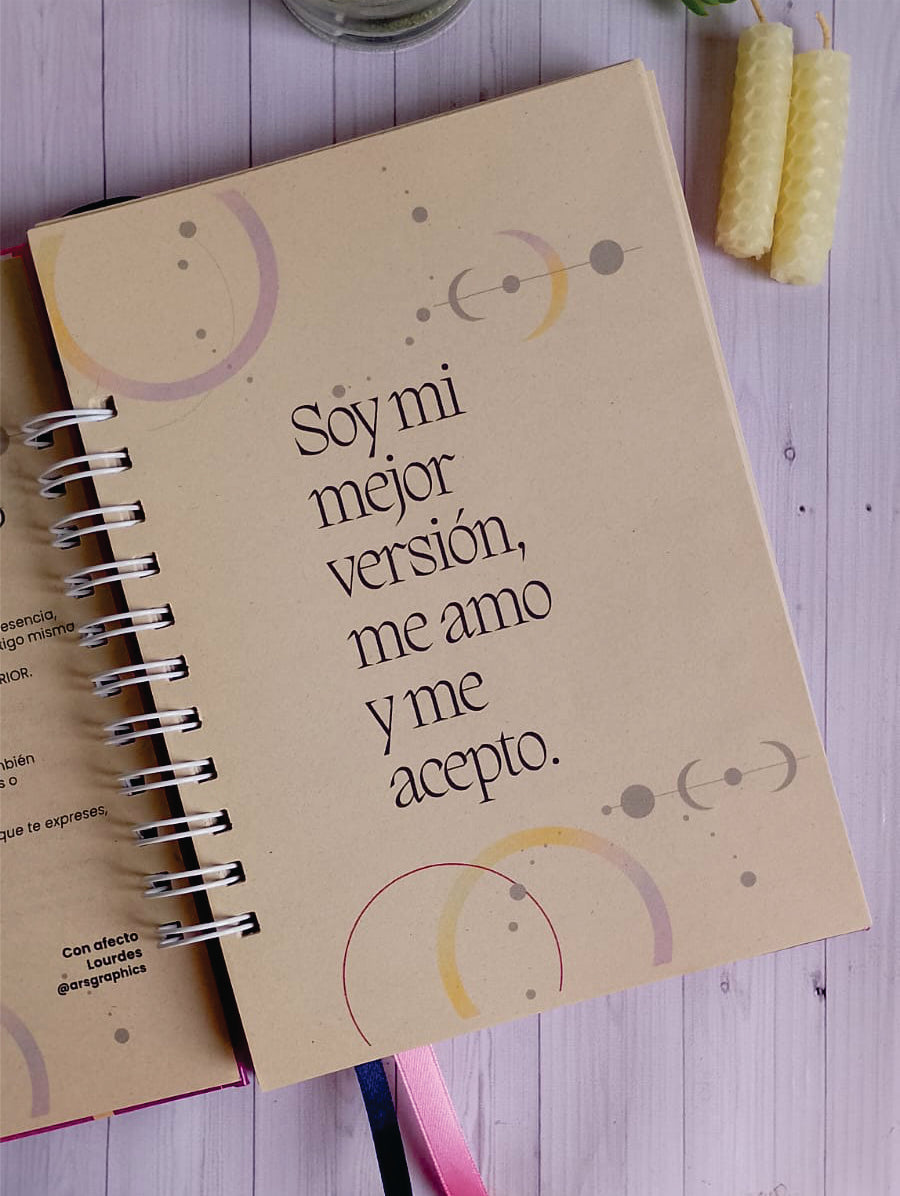 esencia,
tigo misma
RIOR.
mbién
s o
que te expreses,
Con afecto
Lourdes
@arsgraphics
Soy mi
mejor
versión,
me amo
y me
acepto.